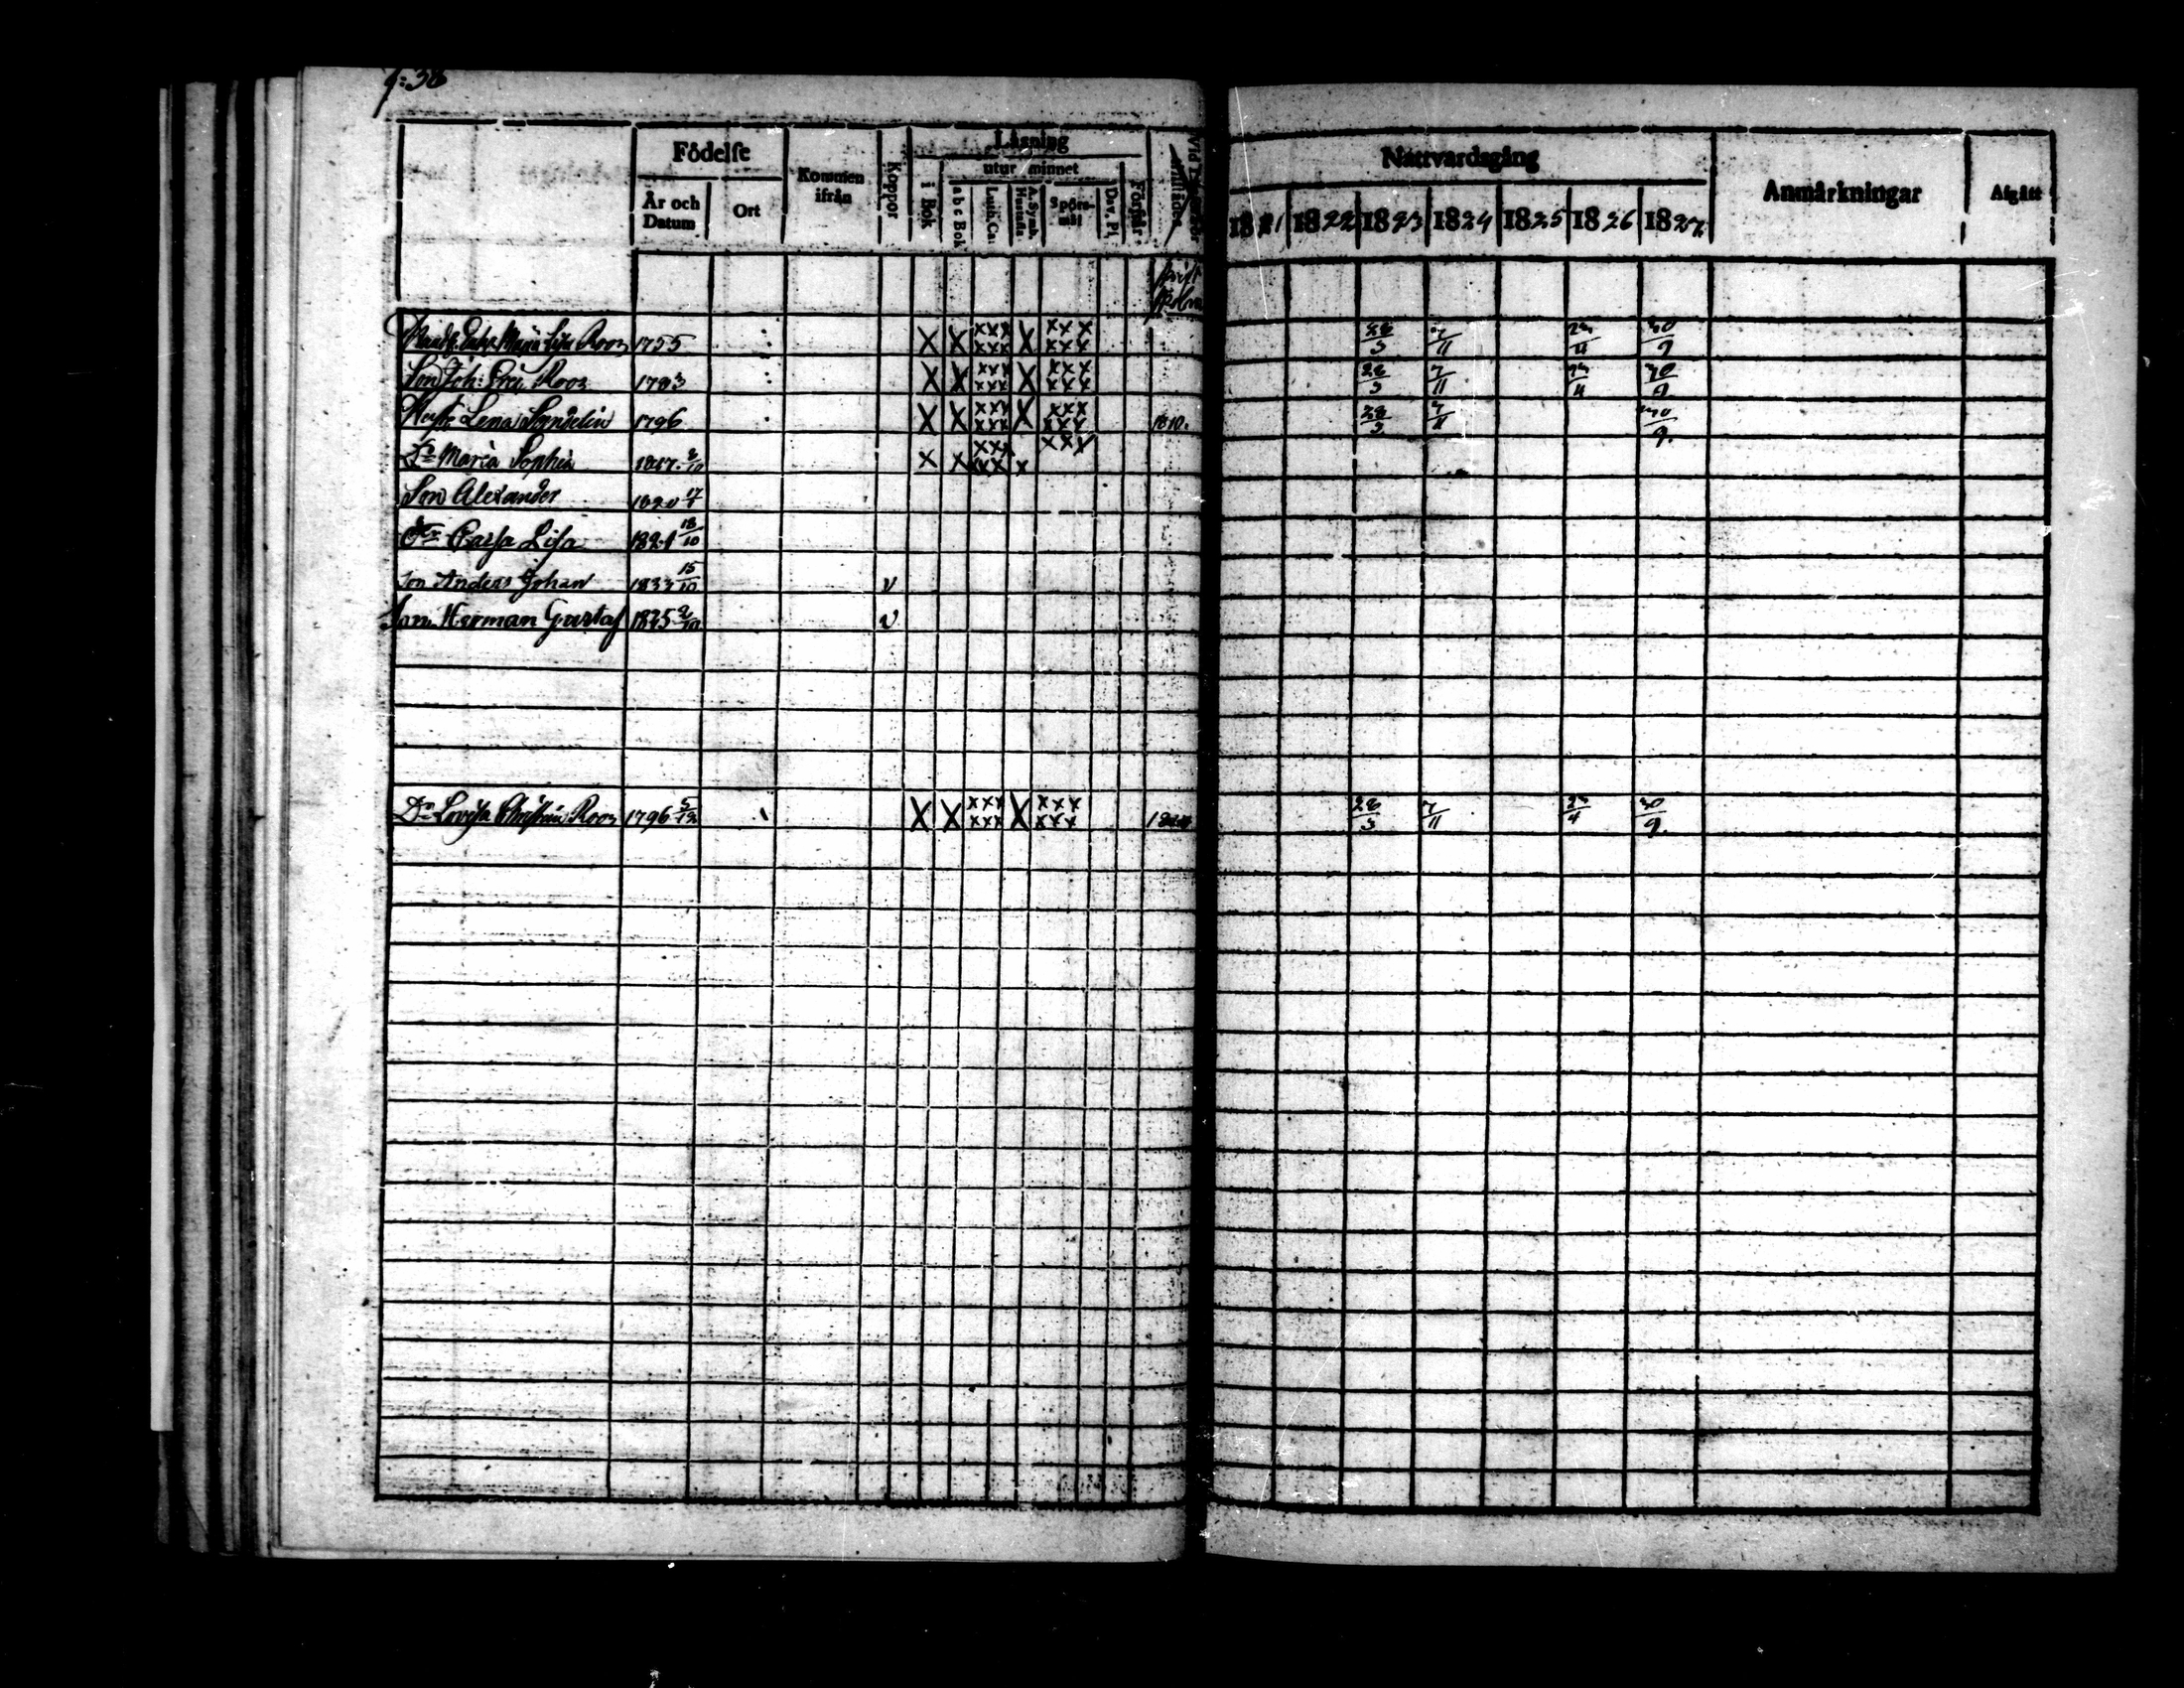 p: 38
Födelse
År och Datum
Ort
Kommen ifrån
Koppor
Läsning
i Bok
utur minnet
a b c Bok
Luth. Ca:
A. Symb. Hustafla
Spörsmål
Dav. Ps.
Förstår
Nattvardsgång
1821 1822 1823 1824 1825 1826 1827
Anmärkningar
Afgått
Maria Lisa Roos 1755 X X xxx xxx X xxx xxx 28/3 7/11 23/4 30/9
Son Joh: Roos 1793 X X xxx xxx X xxx xxx 28/3 7/11 23/4 30/9
Lena 1796 X X xxx xxx X xxx xxx 1810. 28/3 7/11 30/9.
Dr Maria Sophia 1817. 2/10 X X xxx xxx x xxx
Son Alexander 1820 17/1
Dr Cajsa Lisa 1821 18/10
Son Anders Johan 15/10 v
Son Herman Gustaf 1825 2/10 v
Dr Lovisa Christina Roos 1796 5/12 X X xxx xxx X xxx xxx 28/3 7/11 23/4 30/9.